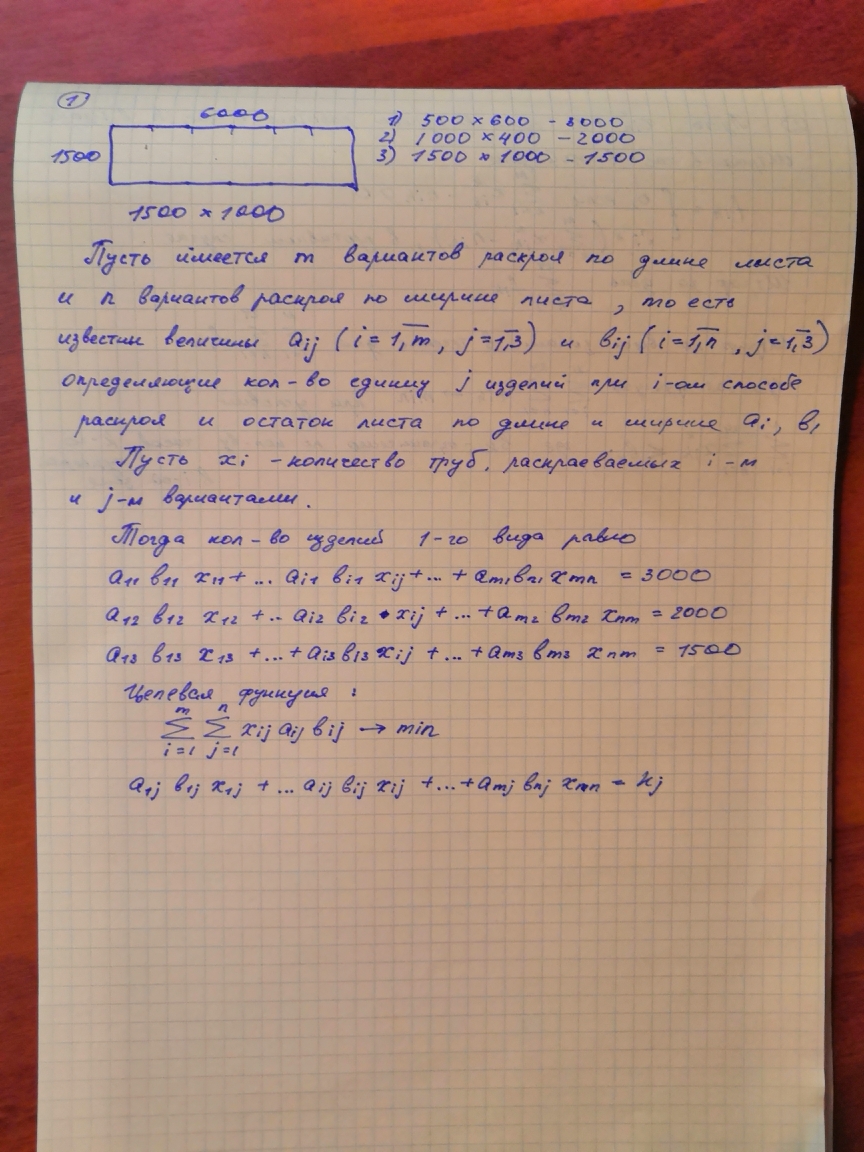 1
6000
1500
1500 × 1000
1) 500 × 600 - 3000
2) 1000 × 400 - 2000
3) 1500 × 1000 - 1500
Пусть имеется m вариантов раскроя по длине листа
и n вариантов раскроя по ширине листа, то есть
известны величины aij (i = 1,m, j = 1,3) и bij (i = 1,n, j = 1,3)
определяющие кол-во единиц j изделий при i-ом способе
раскроя и остаток листа по длине и ширине ai, bi
Пусть xi - количество труб, раскраеваемых i-м
и j-м вариантами.
Тогда кол-во изделий 1-го вида равно
a11 b11 x11 + ... ai1 bi1 xij + ... + am1 bn1 xmn = 3000
a12 b12 x12 + .. ai2 bi2 • xij + ... + am2 bm2 xnm = 2000
a13 b13 x13 + ... + ai3 bi3 xij + ... + am3 bm3 xnm = 1500
Целевая функция :
m n
∑ ∑ xij aij bij → min
i=1 j=1
a1j b1j x1j + ... aij bij xij + ... + amj bnj xmn = kj